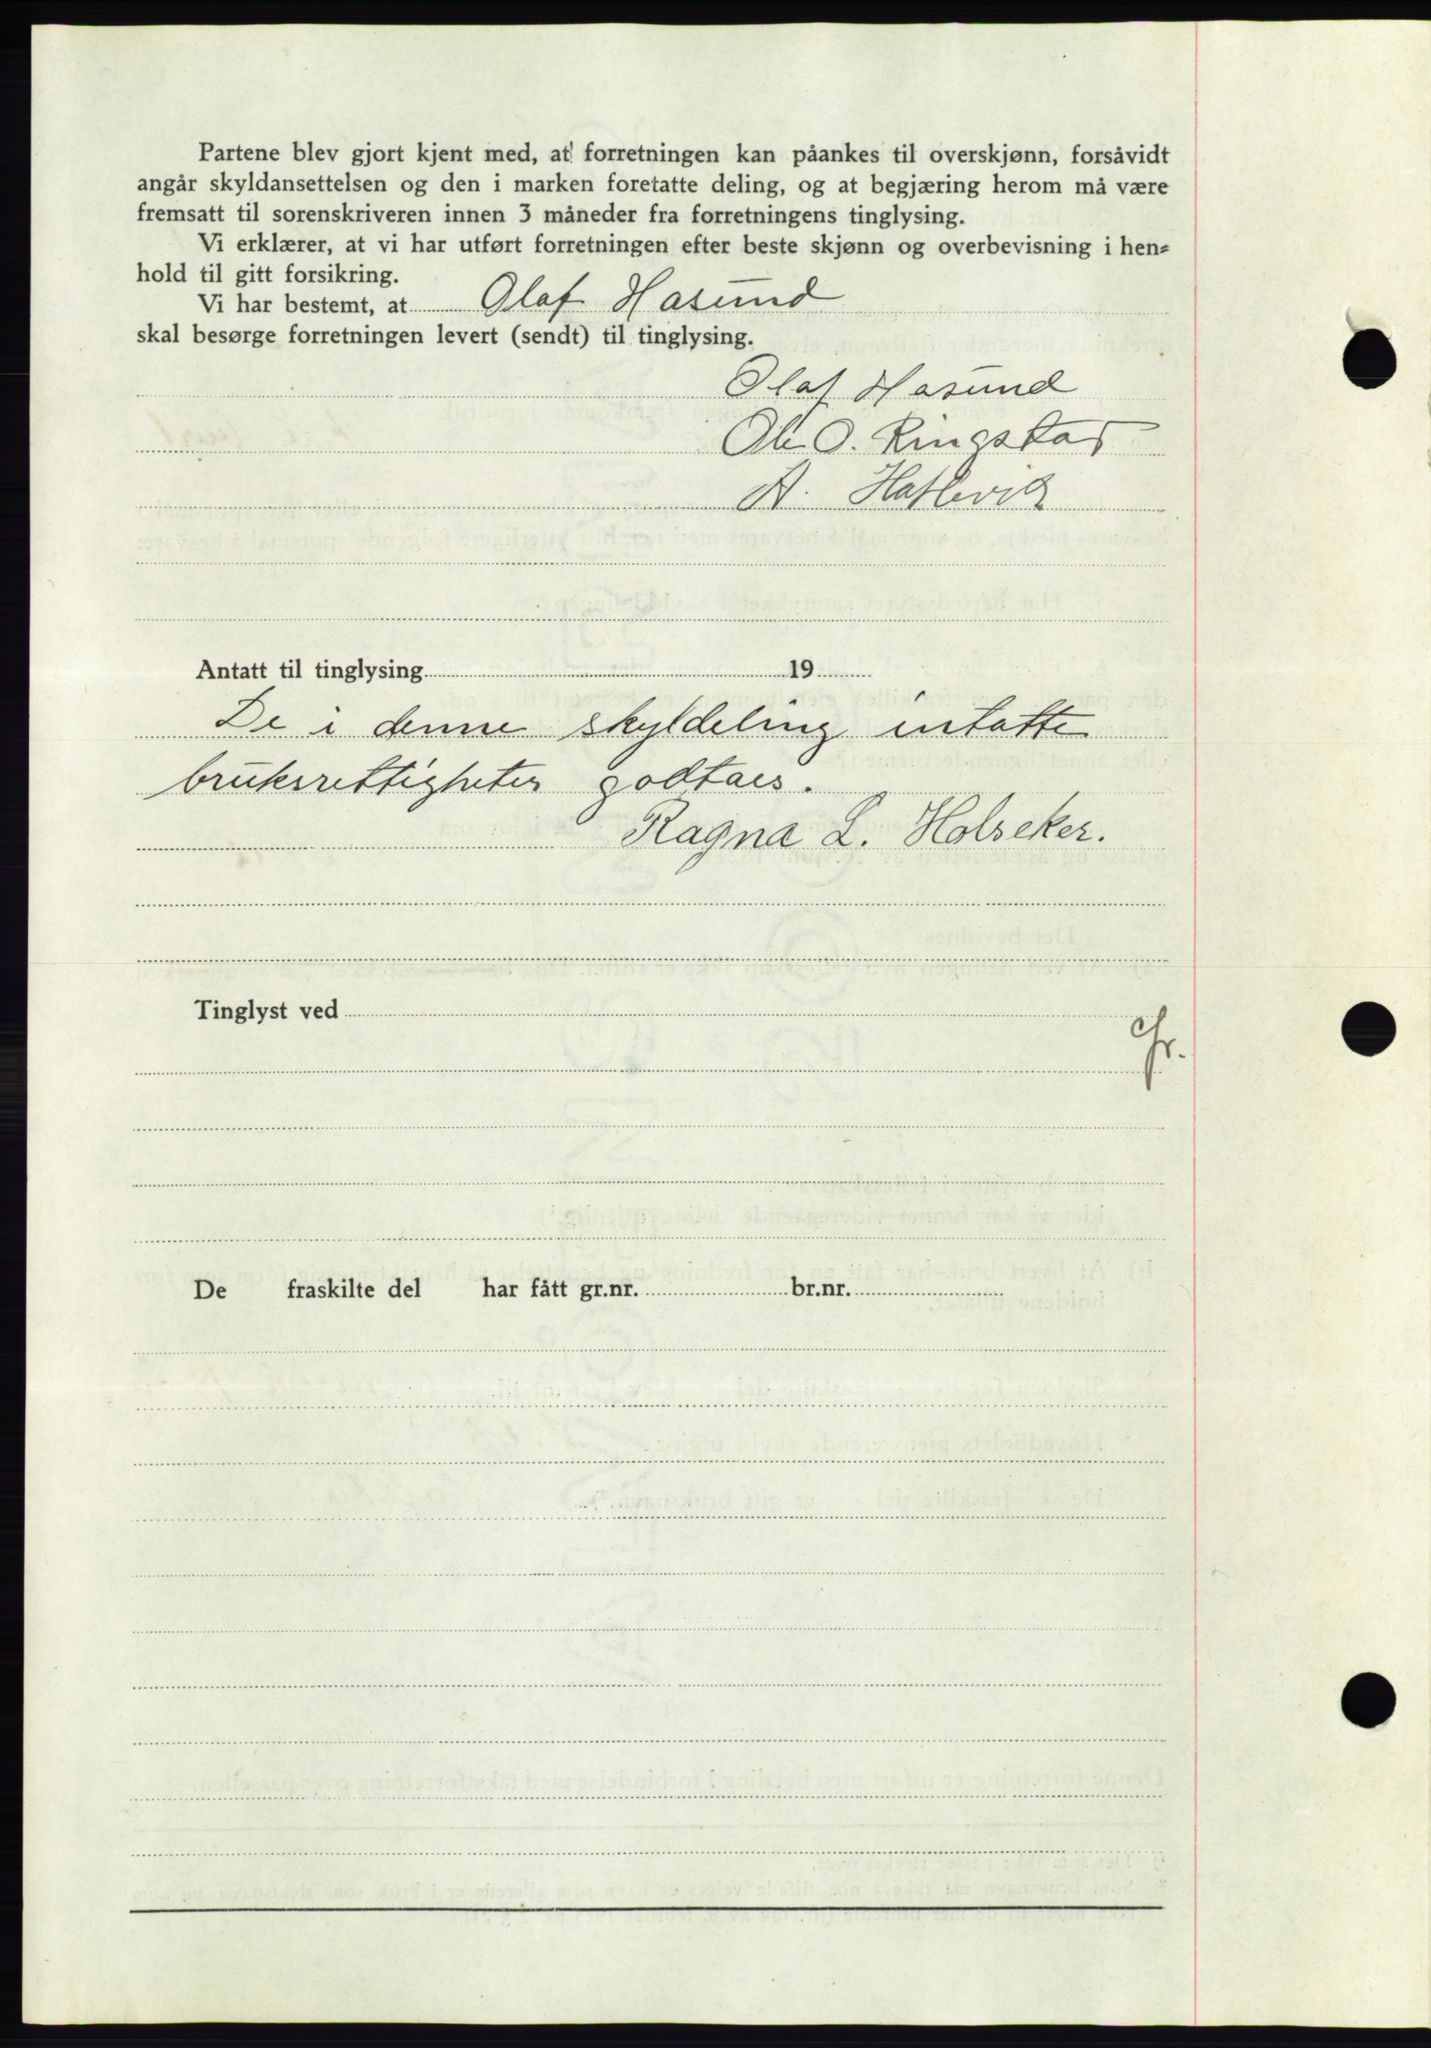 Partene blev gjort kjent med, at forretningen kan påankes til overskjønn, forsåvidt
angår skyldansettelsen og den i marken foretatte deling, og at begjæring herom må være
fremsatt til sorenskriveren innen 3 måneder fra forretningens tinglysing.
Vi erklærer, at vi har utført forretningen efter beste skjønn og overbevisning i hen=
hold til gitt forsikring.
Vi har bestemt, at Olaf Hasund
skal besørge forretningen levert (sendt) til tinglysing.
Olaf Hasund
Ole O. Ringstad
A. Hatlevik
Antatt til tinglysing 19
De i denne skyldeling intatte
bruksrettigheter godtaes.
Ragna L. Holseker.
Tinglyst ved
De fraskilte del har fått gr.nr. br.nr.